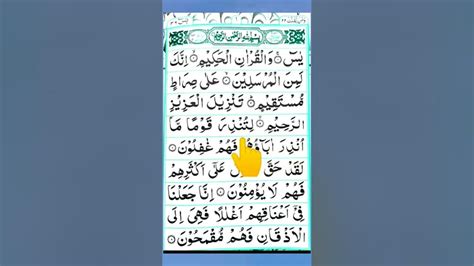 بِسْمِ اللّٰهِ الرَّحْمٰنِ الرَّحِيْمِ
يٰسٓ ۝ وَالْقُرْاٰنِ الْحَكِيْمِ ۝ اِنَّكَ
لَمِنَ الْمُرْسَلِيْنَ ۝ عَلٰى صِرَاطٍ
مُّسْتَقِيْمٍ ۝ تَنْزِيْلَ الْعَزِيْزِ
الرَّحِيْمِ ۝ لِتُنْذِرَ قَوْمًا مَّآ
اُنْذِرَ اٰبَآؤُهُمْ فَهُمْ غٰفِلُوْنَ ۝
لَقَدْ حَقَّ عَلٰٓى اَكْثَرِهِمْ
فَهُمْ لَا يُؤْمِنُوْنَ ۝ اِنَّا جَعَلْنَا
فِيْٓ اَعْنَاقِهِمْ اَغْلٰلًا فَهِيَ اِلَى
الْاَذْقَانِ فَهُمْ مُّقْمَحُوْنَ ۝